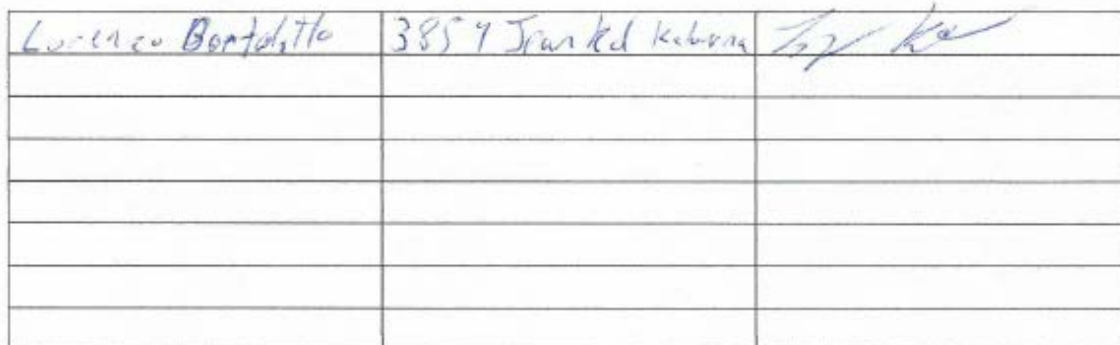 Lorenzo Bortolotto 3854 Jean Rd Kelowna